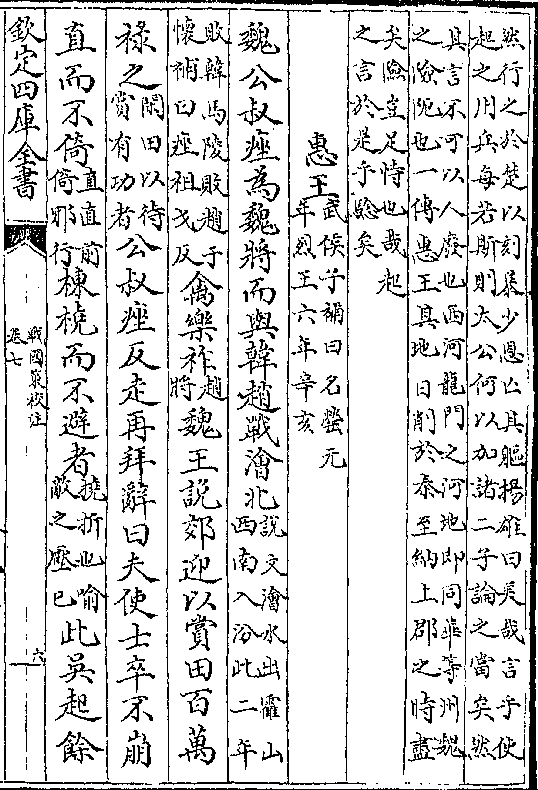 然行之於楚以刻暴少恩亡其軀揚雄曰美哉言乎使
起之用兵每若斯則太公何以加諸二子論之當矣然
其言不可以人廢也西河龍門之河地即同華等州魏
之險阨也一傳惠王其地日削於秦至納上郡之時盡
矣險豈足恃也哉起
之言於是乎驗矣
惠王武侯子補曰名罃元年烈王六年辛亥
魏公叔痤為魏將而與韓趙戰澮北說文澮水出霍山西南入汾此二年
敗韓馬陵敗趙于懷補曰痤祖戈反禽樂祚趙將魏王說郊迎以賞田百萬
祿之閑田以待賞有功者公叔痤反走再拜辭曰夫使士卒不崩
直而不倚直直前倚邪行棟橈而不避者橈折也喻敵之壓已此吳起餘
欽定四庫全書
戰國策校注
卷七
六